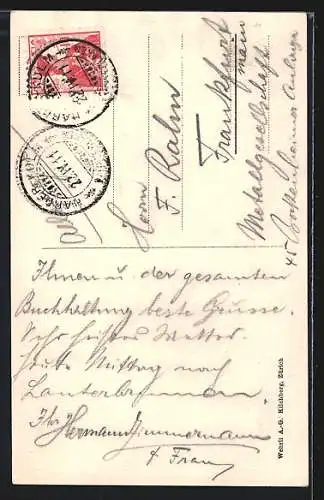 Herrn
F. Rahn
Frankfurt
main
Metallgesellschaft
45 Bockenheimer Anlage
Ihnen u. der gesamten
Buchhaltung beste Grüsse.
Wetter.
heute Mittag nach
Lauterbrunnen
Ihr Hermann Zimmermann
& Frau
Wehrli A.-G. Kilchberg, Zürich